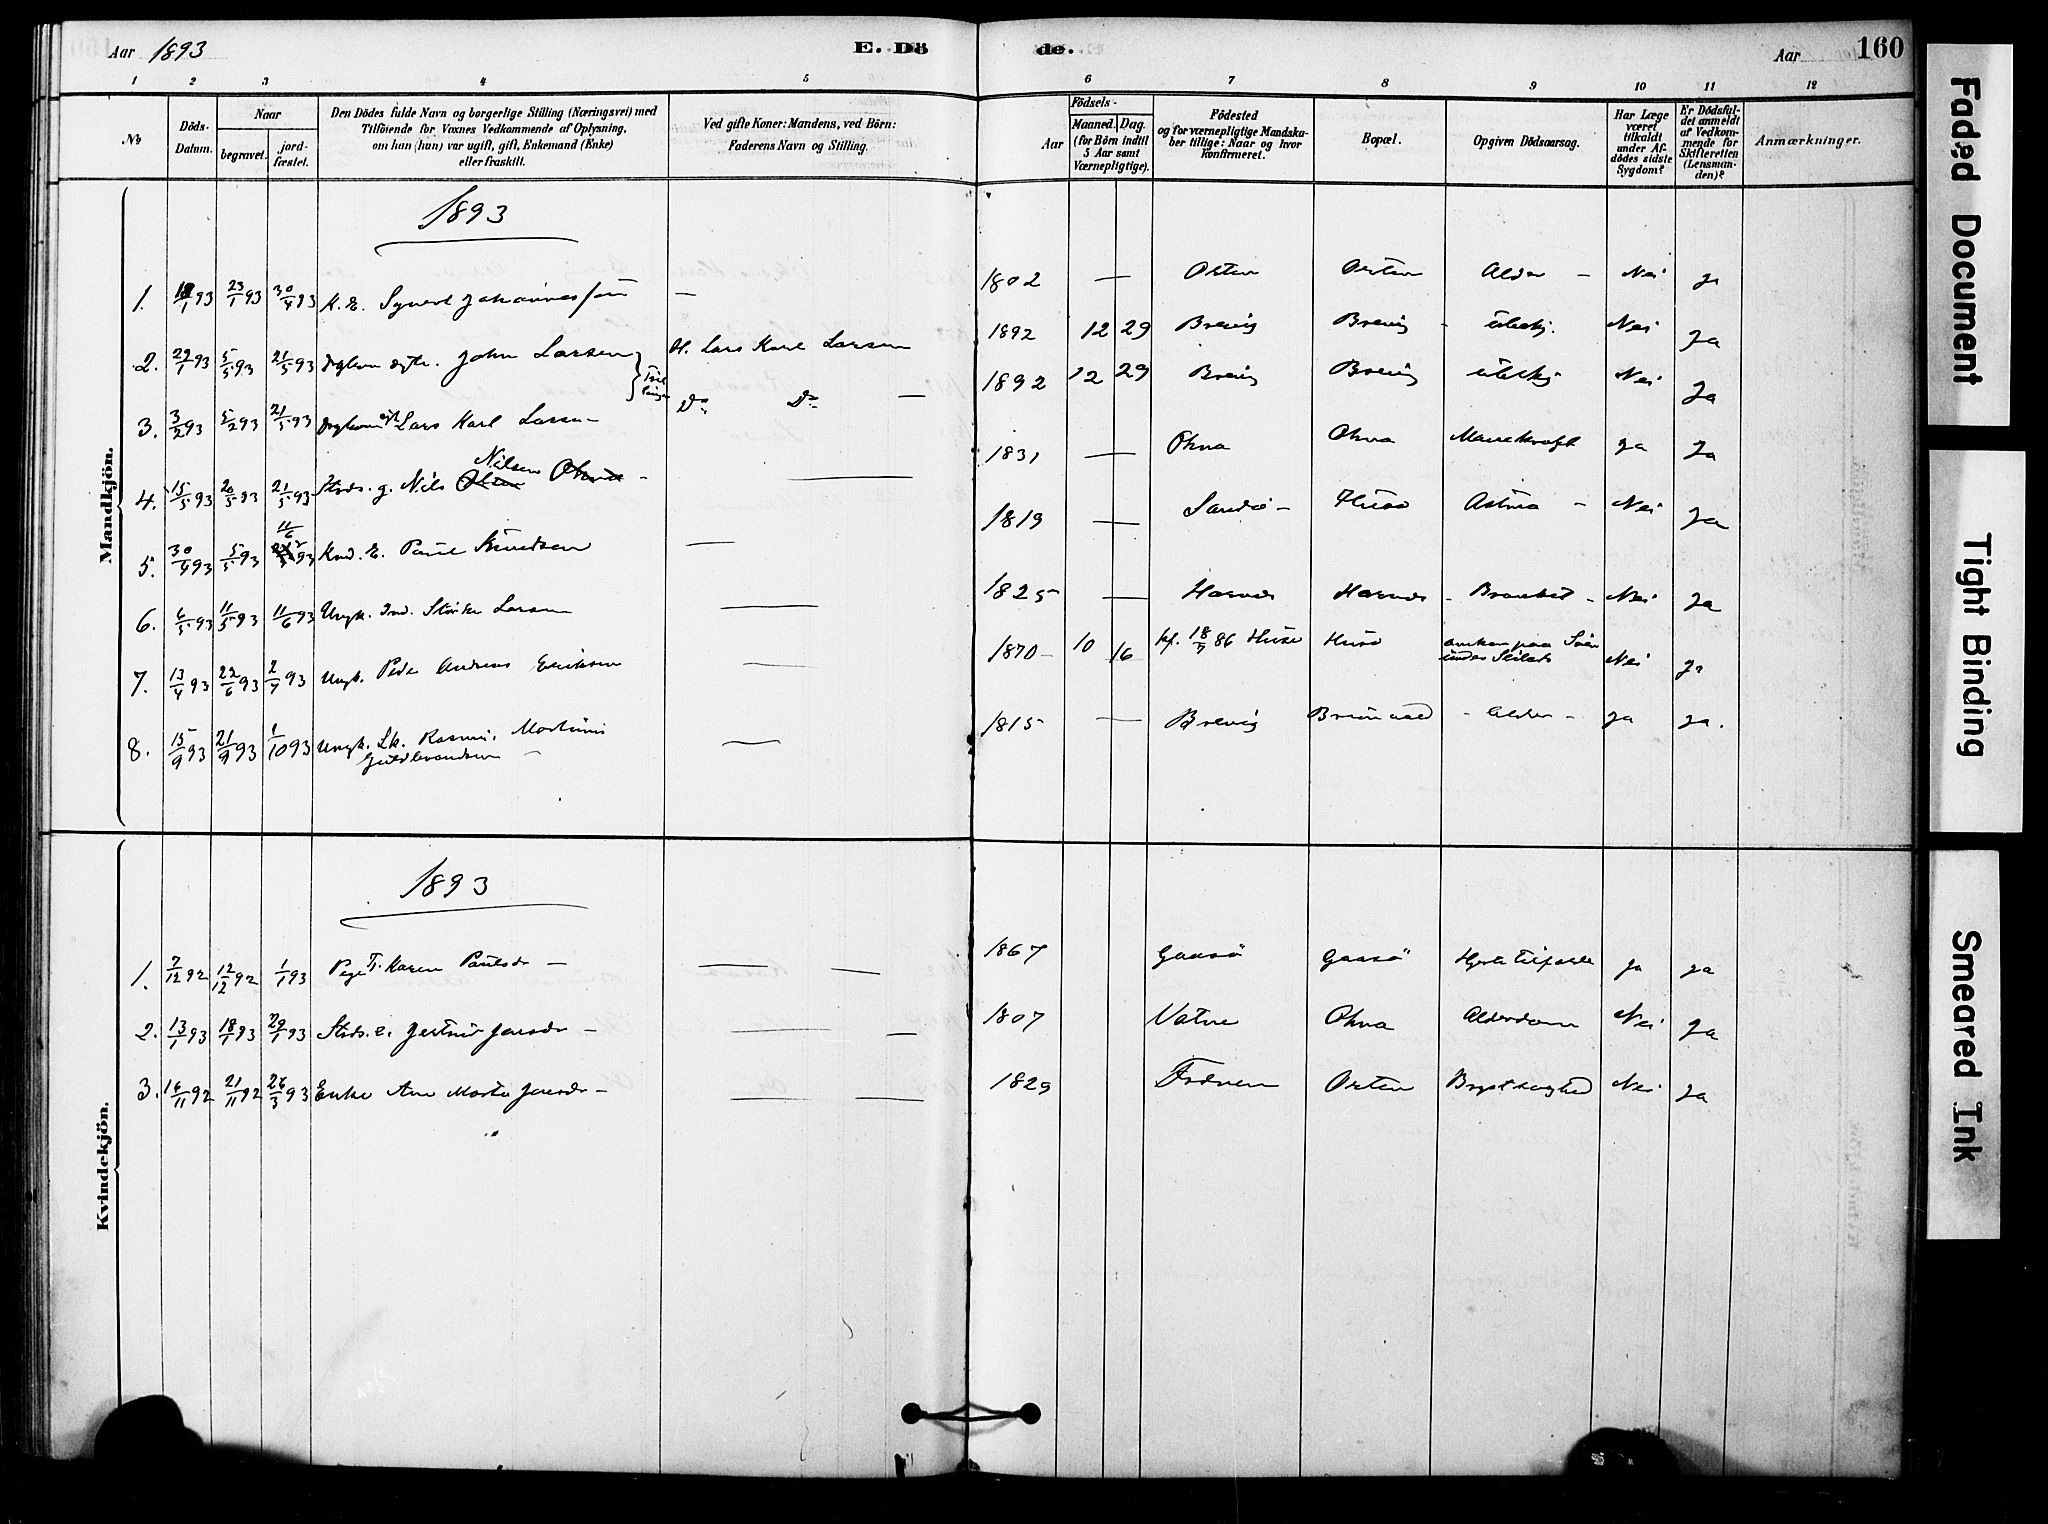 Aar 1893
E. Dö
de.
Aar
160
1 2 3 4 5 6 7 8 9 10 11 12
No
Döds-Datum.
Naar
begravet.
jord-fæstet.
Den Dödes fulde Navn og borgerlige Stilling (Næringsvei) med
Tilföiende for Voxnes Vedkommende af Oplysning,
om han (hun) var ugift, gift, Enkemand (Enke)
eller fraskilt.
Ved gifte Koner: Mandens, ved Börn:
Faderens Navn og Stilling.
Födsels-
Aar
Maaned. Dag.
(for Börn indtil
5 Aar samt
Værnepligtige).
Födested
og for værnepligtige Mandska-
ber tillige: Naar og hvor
konfirmeret.
Bopæl.
Opgiven Dödsaarsag.
Har Læge
været
tilkaldt
under Af-
dödes sidste
Sygdom?
Er Dödsfal-
det anmeldt
af Vedkom-
mende for
Skifteretten
(Lensman-
den)?
Anmærkninger.
Mandkjön.
1893
1. 23/1 93 30/4 93 K. E. Syvert Johannessen — 1802 — Orten Orten Alder — Nei Ja
2. 29/1 93 5/5 93 21/5 93 John Larsen H. Lars Karl Larsen 1892 12 29 Brevig Brevig Ubekj. Nei Ja
3. 3/2 93 5/2 93 21/5 93 Lars Karl Larsen Do Do — 1892 12 29 Brevig Brevig Ubekj Nei Ja
4. 15/5 93 20/5 93 21/5 93 g. Nils Nilsen Ohna — 1831 — Ohna Ohna Mavekræft Ja Ja
5. 30/4 93 5/5 93 11/6 93 E. Paul Knudsen — 1819 — Sandö — Husö Astma — Nei Ja
6. 6/5 93 11/5 93 11/6 93 Ungk. Ind. Larsen — 1825 — Harnes Harnes — — Nei Ja
7. 13/4 93 22/6 93 2/7 93 Ungk. Peder Andreas Eriksen — 1870 — 10 16 kf. 18/7 86 Husö Husö omkom paa Söen Nei Ja
8. 15/9 93 21/9 93 1/10 93 Ungk. Lk. Rasmus Martinus
Guldbrandsen — 1815 — Brevig — Alder — Ja Ja.
Kvindekjön.
1893
1. 7/12 92 12/12 92 1/1 93 Pige T. Karen Paulsdr — — — 1867 Gaasö Gaasö Ja Ja
2. 13/1 93 18/1 93 29/1 93 Jonsdr — — — 1807 Vatne Ohna Alderdom Nei Ja
3. 16/11 92 21/11 92 26/3 93 Enke Ane Marta Jonsdr — — — 1829 Orten Brystsyghed Nei Ja
Faded Document
Tight Binding
Smeared Ink